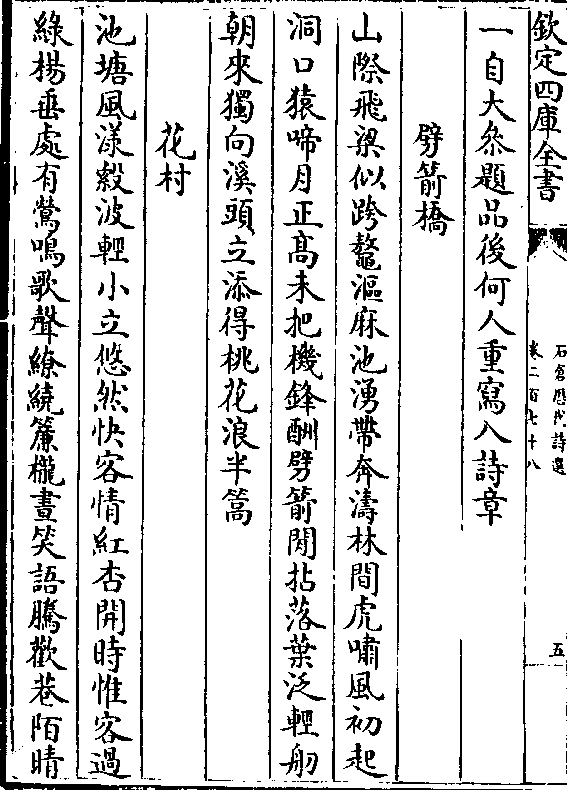 欽定四庫全書
石倉歷代詩選
卷二百七十八
五
一自大參題品後何人重寫入詩章
劈箭橋
山際飛梁似跨鼇漚麻池湧帶奔濤林間虎嘯風初起
洞口猿啼月正高未把機鋒酬劈箭閒拈落葉泛輕舠
朝來獨向溪頭立添得桃花浪半篙
花村
池塘風漾縠波輕小立悠然快客情紅杏開時惟客過
綠楊垂處有鶯鳴歌聲繚繞簾櫳晝笑語騰歡巷陌晴